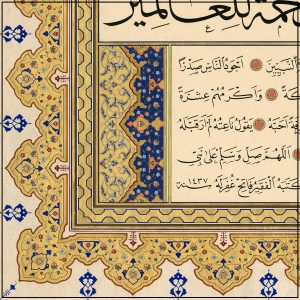 رحمة للعالمين
النبيين ۝ اجود الناس صدرا
واكرمهم عشرة
احبه ۝ يقول ناعته لم ار قبله
اللهم صل وسلم على نبي
كتبه الفقير فاتح غفر له سنة ١٤٣٧